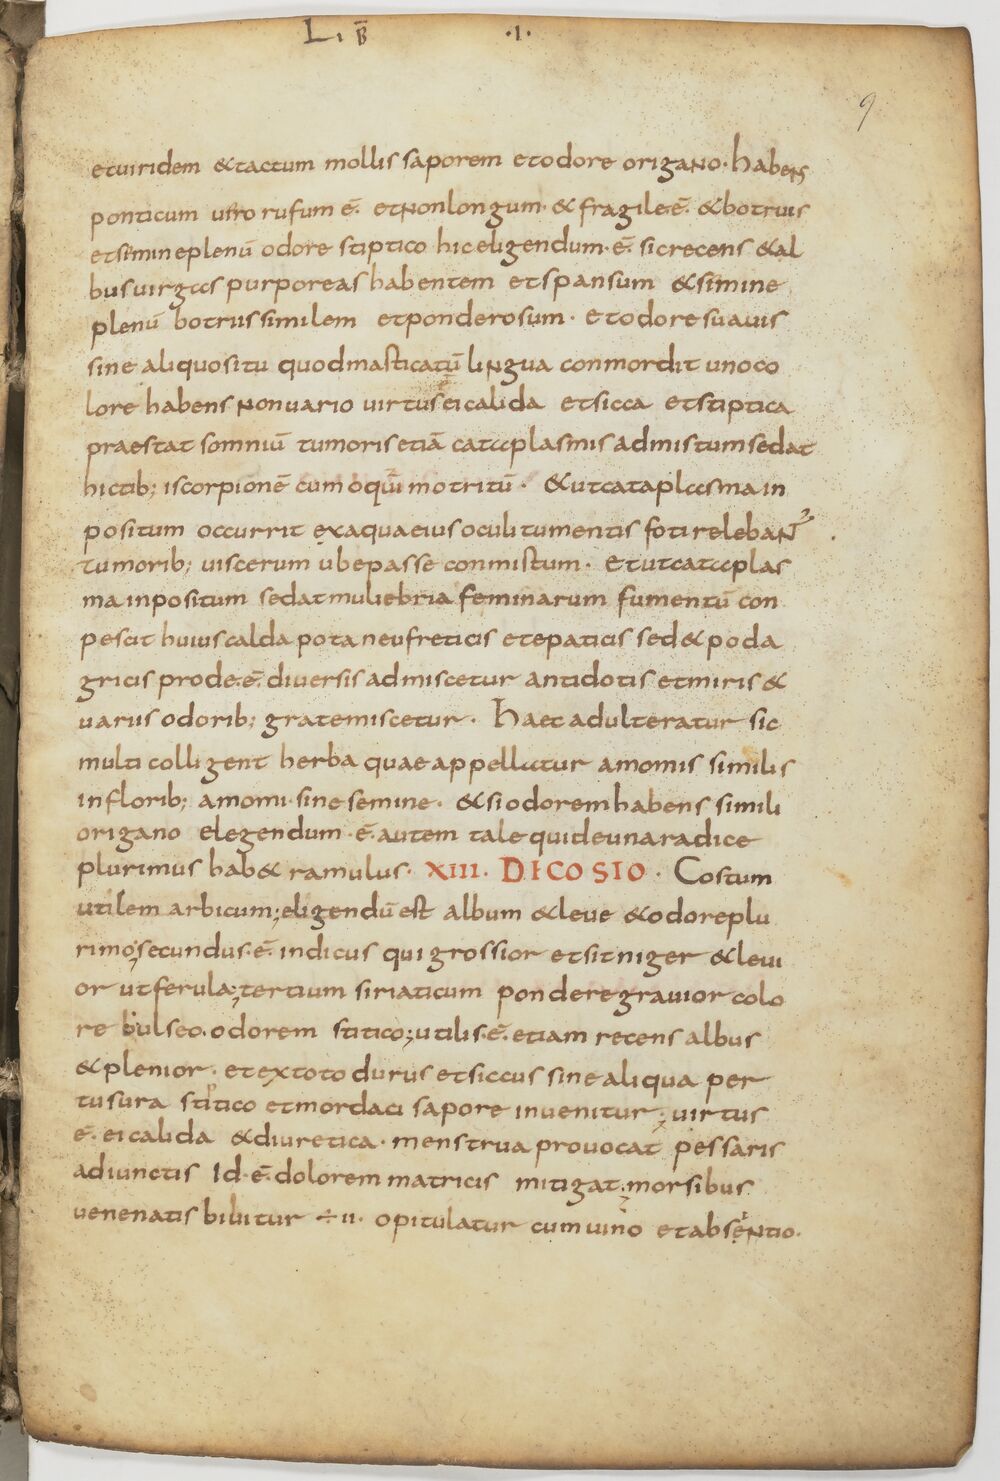 LIB̅ ·I·
9
etuiridem &tactum mollis saporem etodore origano· habens
ponticum u̅ro rufum e̅· etnonlongum· & fragile·e̅· &botruis
etsimineplenu̅ odore stiptico hic eligendum·e̅· sicrecens &al
busuirgas purporeas habentem etspansum &simine
plenu̅ botruis similem etponderosum· etodoresuauis
sine aliquositu quodmasticatu̅ lingua conmordit unoco
lore habens nonuario uirtus ei calida etsicca etstiptica
praestat somniu̅ tumoris etia̅ cataplasmis admistumsedat
hictib; iscorpione̅ cum oqui̅motritu̅· &utcataplasmain
positum occurrit exaquaeius oculi tumentis foti relebant
tumorib; uiscerum ubepasse conmistum· etutcataplas
mainpositum sedatmuliebria feminarum fumentu̅ con
pescit huius calda pota neufreticis etepaticis sed&poda
gricis prode·e̅· diuersis admiscetur antidotis etmiris &
uariis odorib; gratemiscetur· Haec adulteratur sic
multi colligent herba quae appellatur amomis similis
inflorib; amomi· sine semine· &siodoremhabens simili
origano elegendum·e̅· autem tale quideunaradice
plurimus hab& ramulus· XIII· DICOSIO· Costum
utilem arbicum; eligendu̅ est album &leue &odoreplu
rimo; secundus·e̅· indicus qui grossior etsitniger &leui
or utferula; tertium siriaticum ponderegrauior colo
re bulseo· odorem stitico; utilis·e̅· etiam recens albus
&plenior· etextoto durus etsiccus sine aliqua per
tusura stiptico etmordaci sapore inuenitur; uirtus
e̅· ei calida &diuretica· menstrua prouocat pessaris
adiunctis Id·e̅· dolorem matricis mitigat; morsibus
uenenatis bibitur ÷ II· opitulatur cumuino etabsentio·